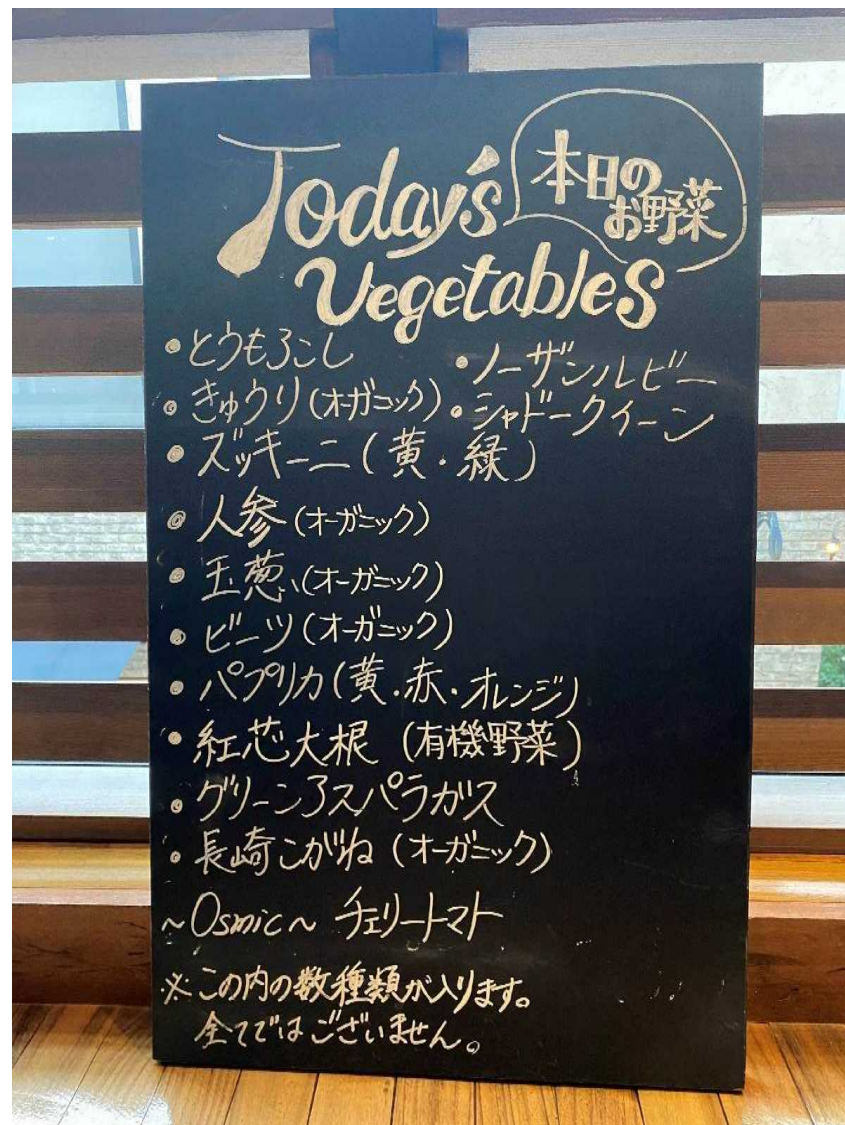 Today's
本日の
お野菜
Vegetables
・とうもろこし
・きゅうり(オーガニック)
・ズッキーニ(黄・緑)
・人参(オーガニック)
・玉葱(オーガニック)
・ビーツ(オーガニック)
・パプリカ(黄・赤・オレンジ)
・紅芯大根(有機野菜)
・グリーンアスパラガス
・長崎こがね(オーガニック)
・ノーザンルビー
・シャドークイーン
~Osmic~ チェリートマト
※この内の数種類が入ります。
全てではございません。